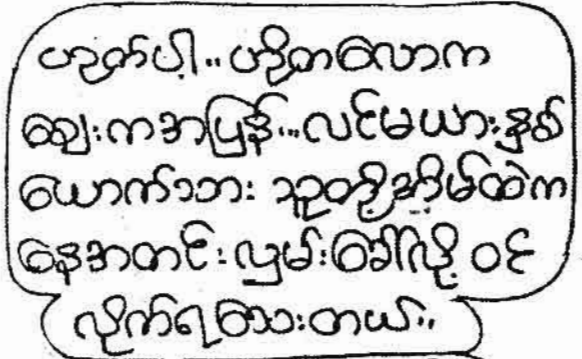 ဟုတ်ပါ့။ ဟိုတလောက
ဈေးကအပြန်။ လင်မယားနှစ်
ယောက်သား သူတို့အိမ်ထဲက
နေအတင်းလှမ်းခေါ်လို့ ဝင်
လိုက်ရသေးတယ်။